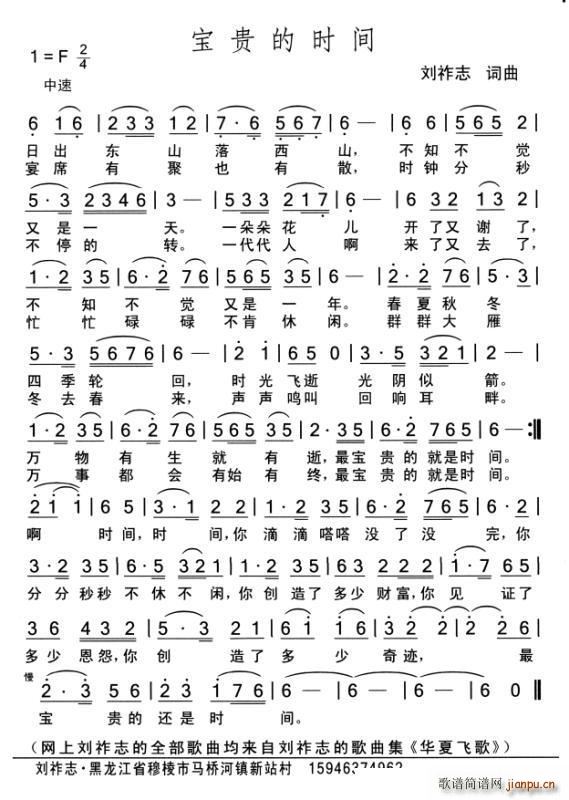 宝贵的时间
1=F 2/4
刘祚志 词曲
中速
6 16 | 233 | 7·6 567 | 6— | 6 565 2 |
日出东山落西山,不知不觉
宴席有聚也有散,时钟分秒
5·3 2346 | 3— | 533 217 | 6— | 6 32 13 2 |
又是一天。一朵朵花儿开了又谢了,
不停的转。一代代人啊来了又去了,
1·2 35 | 6·2 76 | 565 35 | 6— | 2·2 76 | 5·3 |
不知不觉又是一年。春夏秋冬
忙忙碌碌不肯休闲。群群大雁
5·3 5676 | 6— | 2 1 | 65 0 | 3·356 | 543 2 |
四季轮回,时光飞逝光阴似箭。
冬去春来,声声鸣叫回响耳畔。
1·2 35 | 6·2 76 | 5 1 | 2·35 | 6·2 765 | 6— :‖
万物有生就有逝,最宝贵的就是时间。
万事都会有始有终,最宝贵的就是时间。
2 1 1 | 65 | 3·1 | 2·35 | 6·2 765 | 6·1 |
啊时间,时间,你滴滴嗒嗒没了没完,你
3·2 35 | 3·2 32 | 1·2 35 | 3·2 12 | 1·7 65 |
分分秒秒不休不闲,你创造了多少财富,你见证了
36 432 | 5·3 21 | 61 16 | 6— | 6 2 |
多少恩怨,你创造了多少奇迹,最
慢
2·3 | 5 05 | 23 176 | 6— | 60 ‖
宝贵的还是时间。
(网上刘祚志的全部歌曲均来自刘祚志的歌曲集《华夏飞歌》)
刘祚志·黑龙江省穆棱市马桥河镇新站村
歌谱简谱网
jianpu.cn